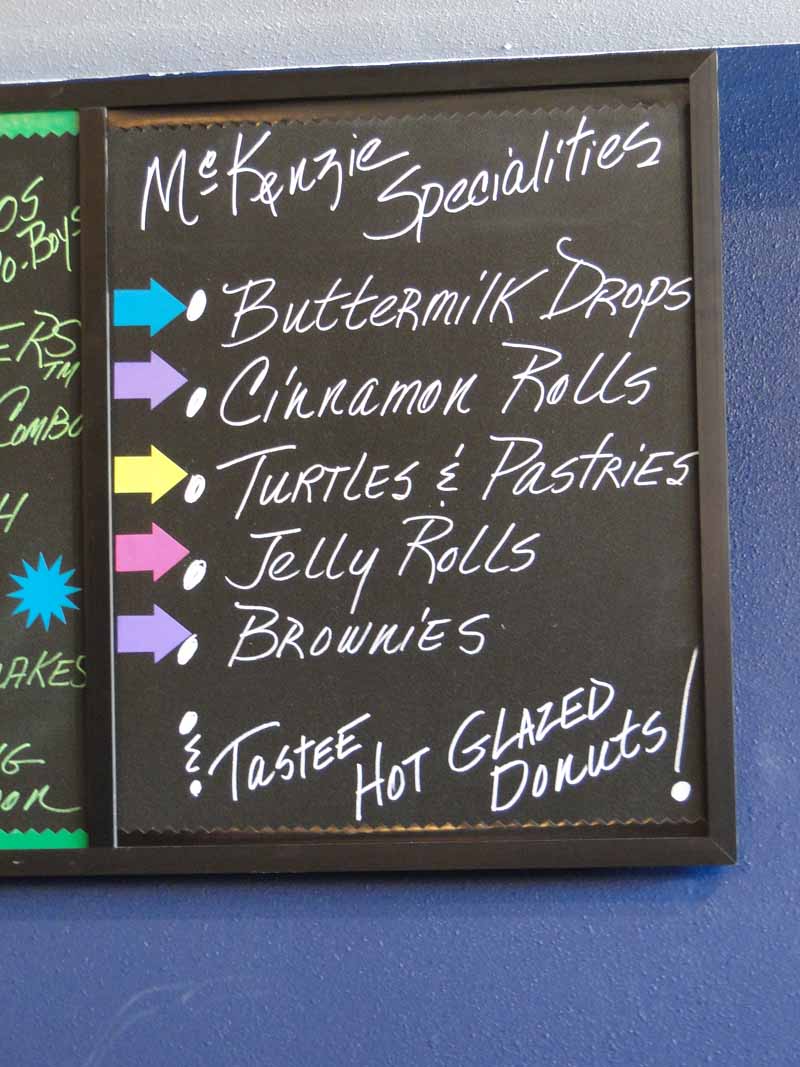 McKenzie Specialities
• Buttermilk Drops
• Cinnamon Rolls
• Turtles & Pastries
• Jelly Rolls
• Brownies
& Tastee Hot Glazed Donuts!
Po-Boys
TM
Combo